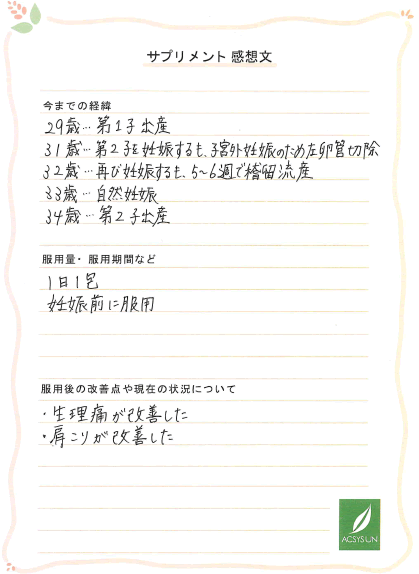 サプリメント 感想文
今までの経緯
29歳… 第1子出産
31歳… 第2子を妊娠するも、子宮外妊娠のため左卵管切除
32歳… 再び妊娠するも、5~6週で稽留流産
33歳… 自然妊娠
34歳… 第2子出産
服用量・服用期間など
1日1包
妊娠前に服用
服用後の改善点や現在の状況について
・生理痛が改善した
・肩こりが改善した
ACSYSUN